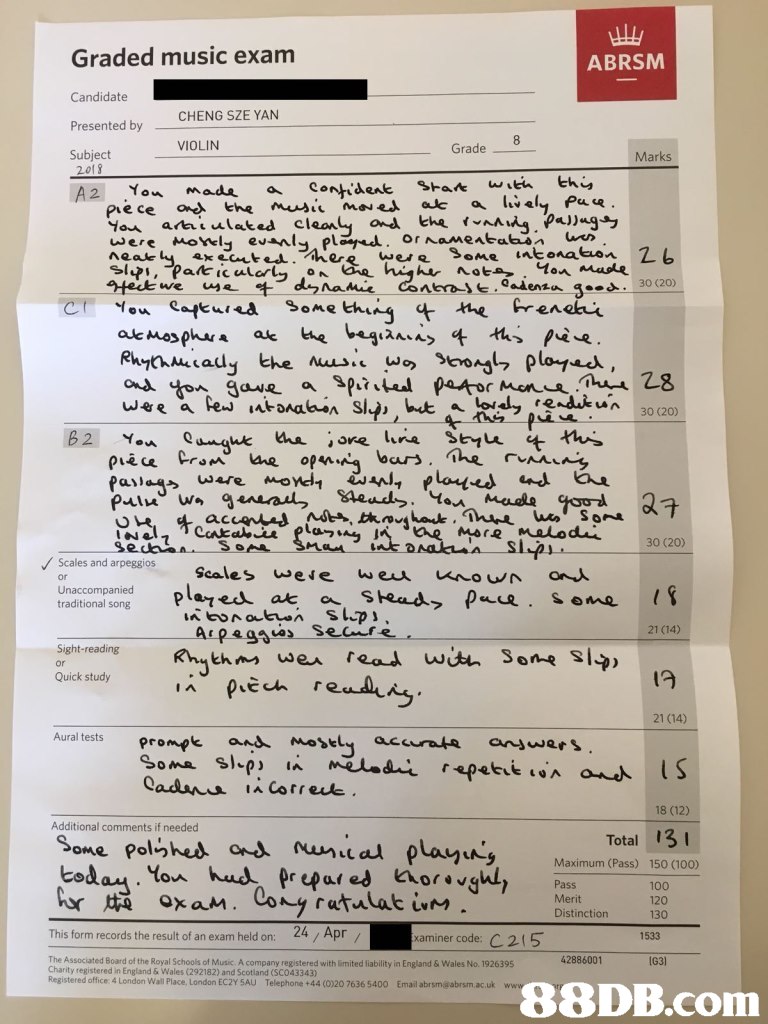 Graded music exam
ABRSM
Candidate
Presented by CHENG SZE YAN
Subject VIOLIN Grade 8
2018
Marks
A2 You made a confident start with this
piece and the music moved at a lively pace.
You articulated cleanly and the running passages
were mostly evenly played. Ornamentation was
neatly executed. There were some intonation 26
slips, particularly on the higher notes. You made
effective use of dynamic contrast. Cadenza good. 30 (20)
C1 You captured something of the frenetic
atmosphere at the beginning of this piece.
Rhythmically the music was strongly played,
and you gave a spirited performance. There 28
were a few intonation slips, but a lovely rendition
of this piece. 30 (20)
B2 You caught the style of this
piece from the opening bars. The running
passages were mostly evenly played and the
pulse was generally steady. You made good 27
use of accented notes, throughout. There was some
lovely cantabile playing in the more melodic
section. Some small intonation slips. 30 (20)
✓ Scales and arpeggios
or
Unaccompanied
traditional song
Scales were well known and
played at a steady pace. Some 18
intonation slips.
Arpeggios secure. 21 (14)
Sight-reading
or
Quick study
Rhythms well read with some slips
in pitch reading. 17
21 (14)
Aural tests
prompt and mostly accurate answers.
Some slips in melodic repetition and 15
Cadence incorrect.
18 (12)
Additional comments if needed
Some polished and musical playing
today. You had prepared thoroughly
for the exam. Congratulations.
Total 131
Maximum (Pass) 150 (100)
Pass 100
Merit 120
Distinction 130
This form records the result of an exam held on: 24 / Apr / xaminer code: C215 1533
The Associated Board of the Royal Schools of Music. A company registered with limited liability in England & Wales No. 1926395 42886001 [G3]
Charity registered in England & Wales (292182) and Scotland (SC043343)
Registered office: 4 London Wall Place, London EC2Y 5AU Telephone +44 (0)20 7636 5400 Email abrsm@abrsm.ac.uk www
88DB.com